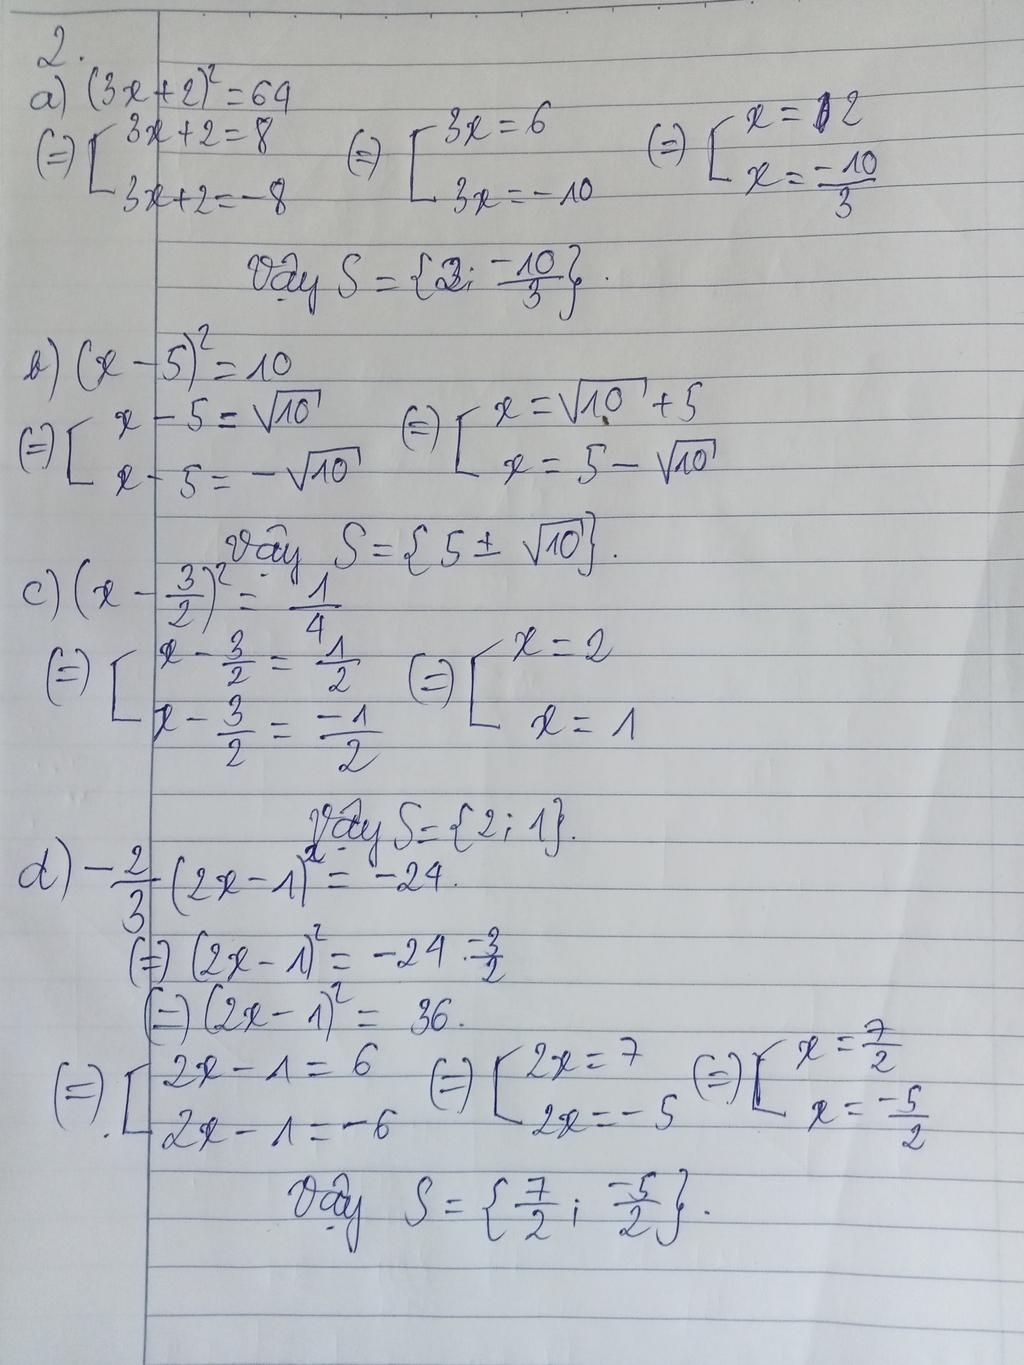 2.
a) (3x+2)² = 64
(=) [ 3x+2 = 8 (=) [ 3x = 6 (=) [ x = 2
3x+2 = -8 3x = -10 x = -10/3
Vậy S = {2; -10/3}.
b) (x - 5)² = 10
(=) [ x - 5 = √10 (=) [ x = √10 + 5
x - 5 = -√10 x = 5 - √10
Vậy S = {5 ± √10}.
c) (x - 3/2)² = 1/4
(=) [ x - 3/2 = 1/2 (=) [ x = 2
x - 3/2 = -1/2 x = 1
Vậy S = {2; 1}.
d) -2/3 (2x - 1)² = -24.
(=) (2x - 1)² = -24 . -3/2
(=) (2x - 1)² = 36.
(=) [ 2x - 1 = 6 (=) [ 2x = 7 (=) [ x = 7/2
2x - 1 = -6 2x = -5 x = -5/2
Vậy S = {7/2; -5/2}.